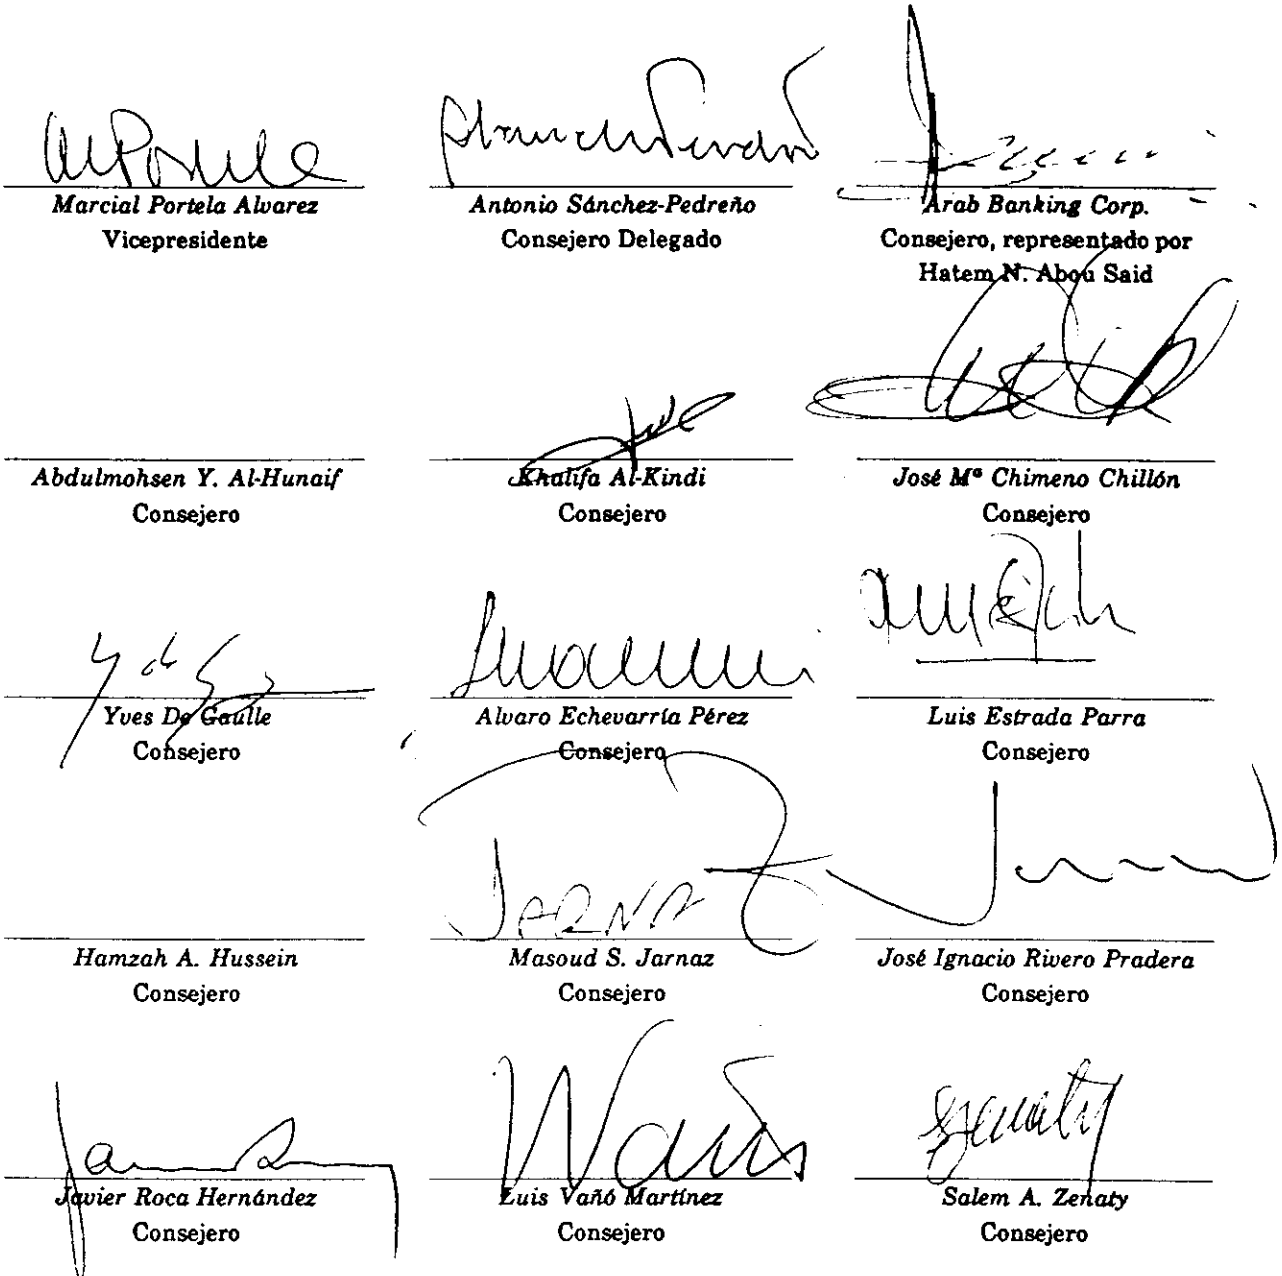 Marcial Portela Alvarez
Vicepresidente
Antonio Sánchez-Pedreño
Consejero Delegado
Arab Banking Corp.
Consejero, representado por
Hatem N. Abou Said
Abdulmohsen Y. Al-Hunaif
Consejero
Khalifa Al-Kindi
Consejero
José Mª Chimeno Chillón
Consejero
Yves De Gaulle
Consejero
Alvaro Echevarría Pérez
Consejero
Luis Estrada Parra
Consejero
Hamzah A. Hussein
Consejero
JARNAZ
Masoud S. Jarnaz
Consejero
José Ignacio Rivero Pradera
Consejero
Javier Roca Hernández
Consejero
Luis Vañó Martínez
Consejero
Szenaty
Salem A. Zenaty
Consejero